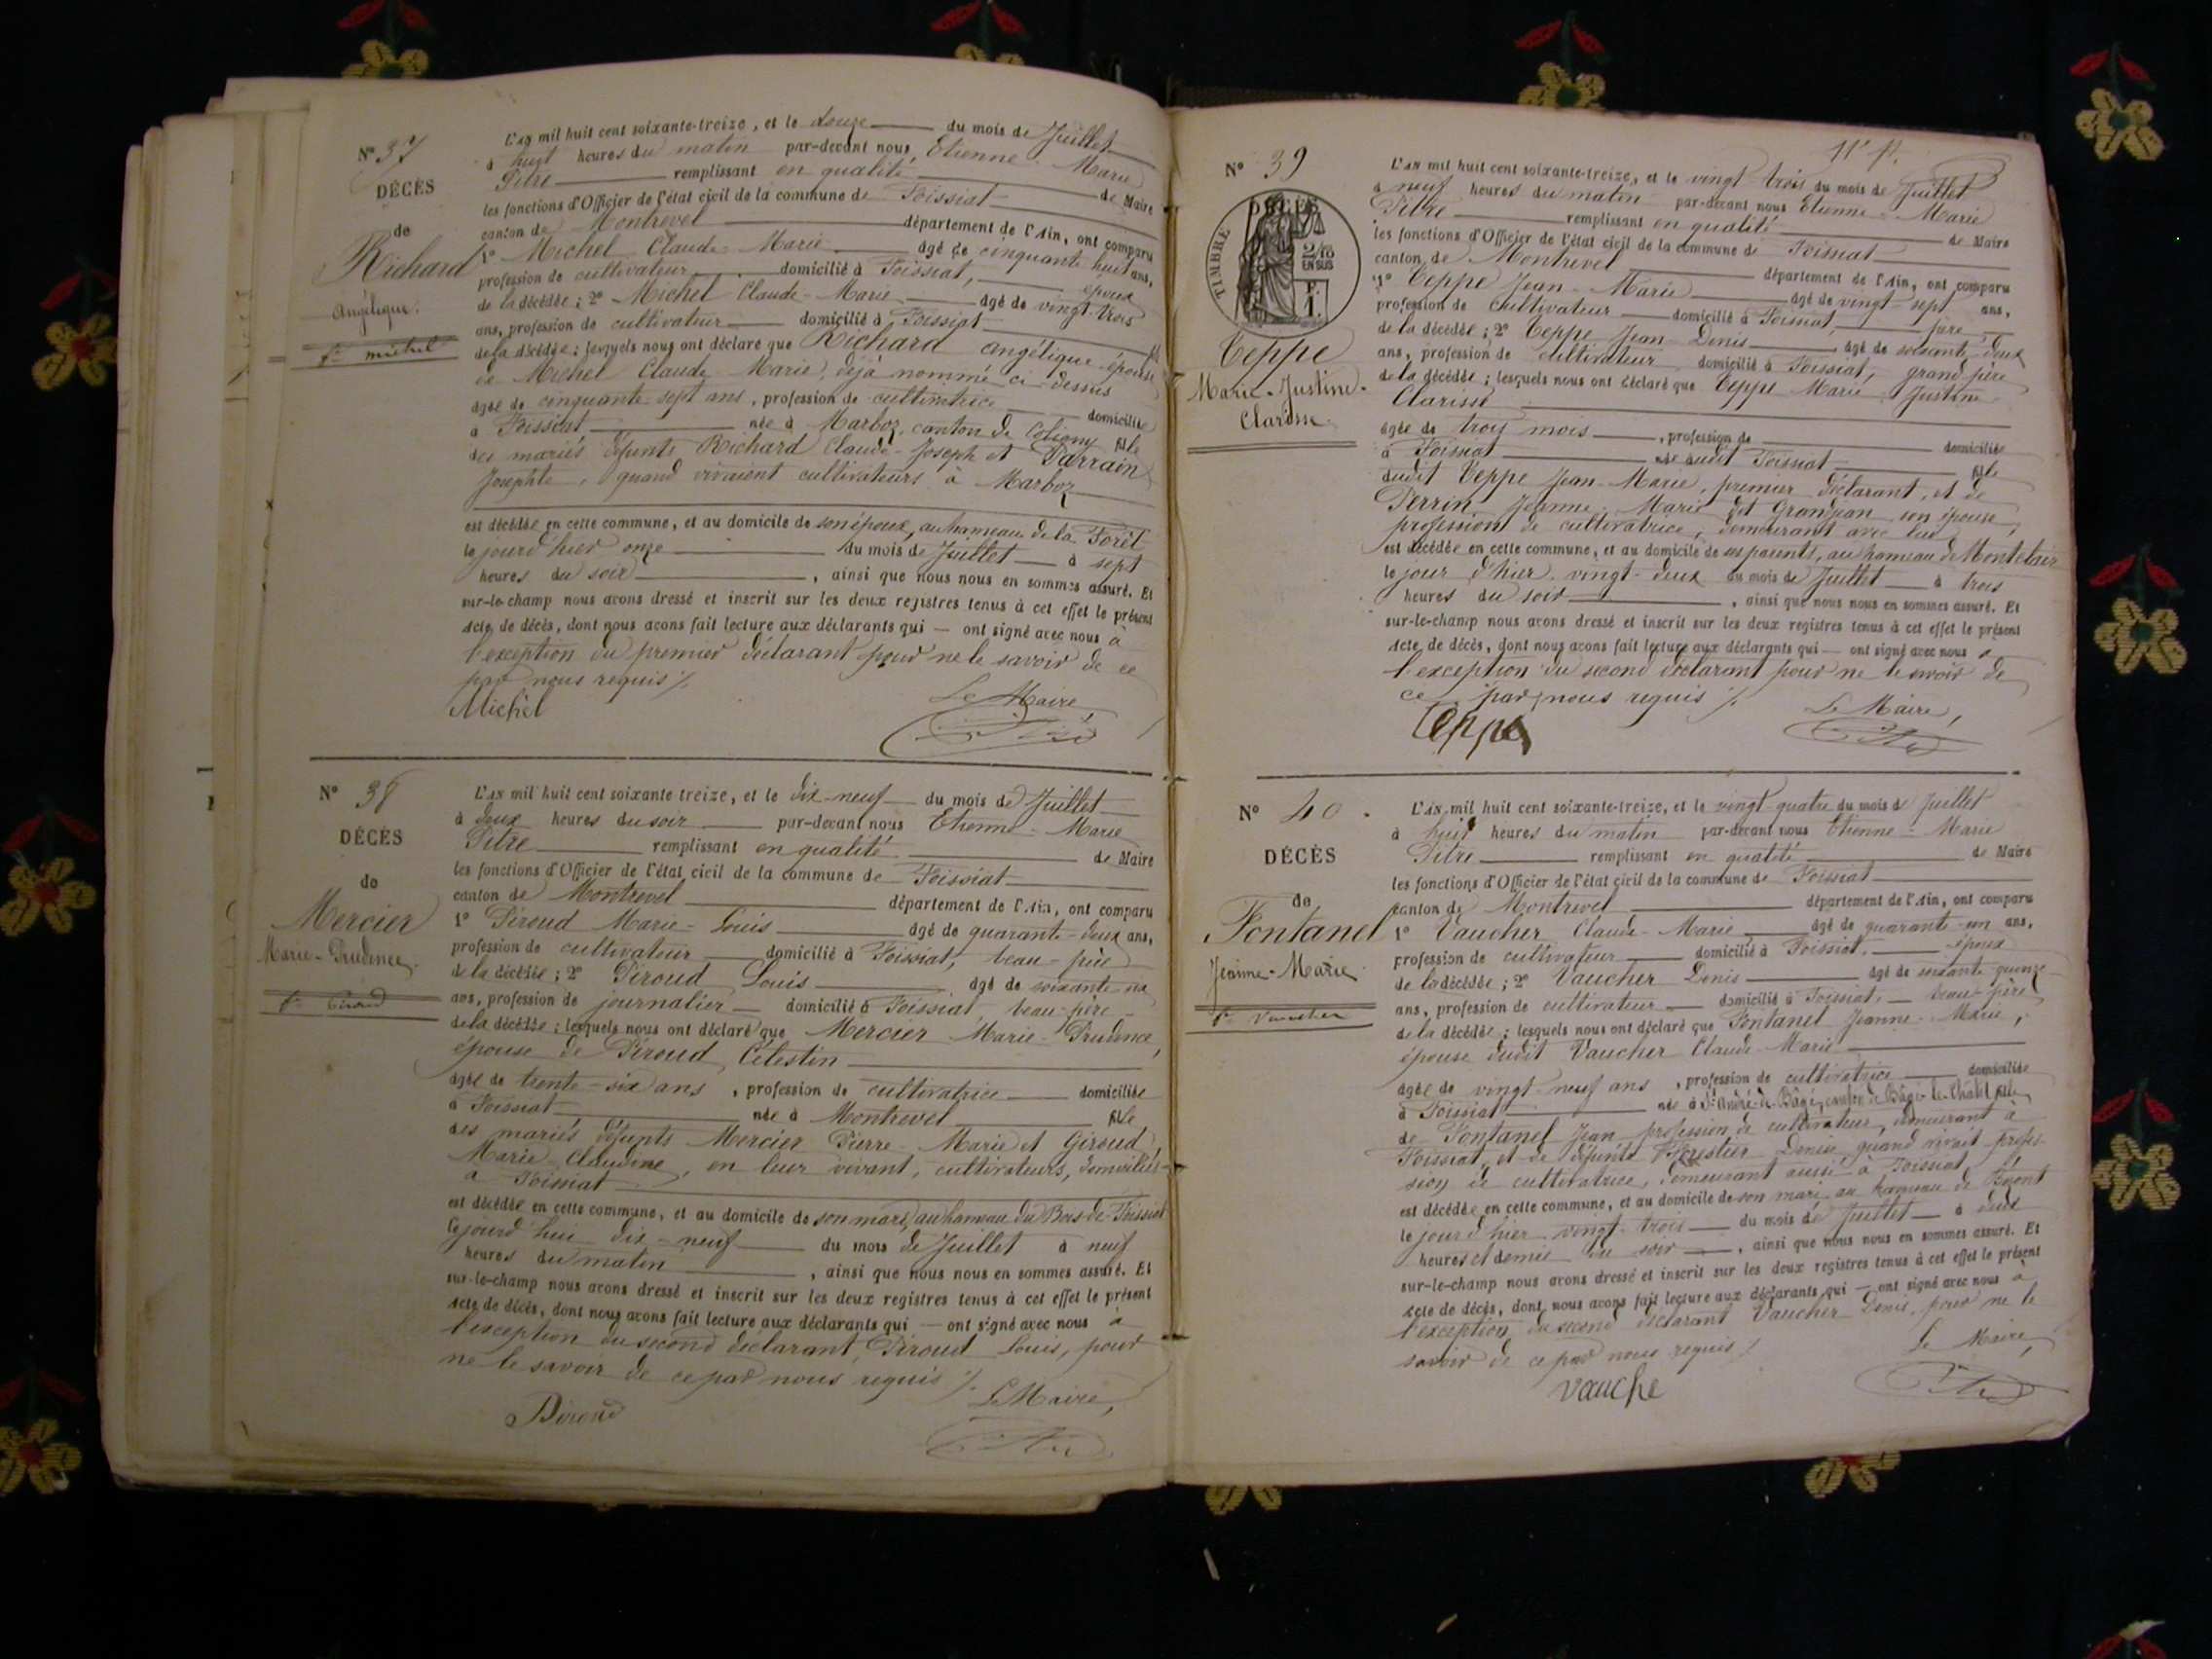 N° 37
DÉCÈS
de
Richard
Angélique.
fe Michel
L'an mil huit cent soixante-treize, et le douze du mois de Juillet
à huit heures du matin par-devant nous Etienne-Marie
Pitre remplissant en qualité de Maire
les fonctions d'Officier de l'état civil de la commune de Foissiat
canton de Montrevel département de l'Ain, ont comparu
1° Michel Claude-Marie âgé de cinquante huit ans,
profession de cultivateur domicilié à Foissiat, époux
de la décédée ; 2° Michel Claude-Marie âgé de vingt-trois
ans, profession de cultivateur domicilié à Foissiat fils
de la décédée ; lesquels nous ont déclaré que Richard Angélique épouse
de Michel Claude Marie, déjà nommé ci-dessus
âgée de cinquante sept ans, profession de cultivatrice domiciliée
à Foissiat née à Marboz, canton de Coligny fille
des mariés défunts Richard Claude-Joseph et Parrain
Josephte, quand vivaient cultivateurs à Marboz
est décédée en cette commune, et au domicile de son époux, au hameau de la Forêt
le jourd'hier onze du mois de Juillet à sept
heures du soir, ainsi que nous nous en sommes assuré. Et
sur-le-champ nous avons dressé et inscrit sur les deux registres tenus à cet effet le présent
acte de décès, dont nous avons fait lecture aux déclarants qui — ont signé avec nous à
l'exception du premier déclarant pour ne le savoir de ce
par nous requis ./.
Michel Le Maire,
Pitre
N° 38
DÉCÈS
de
Mercier
Marie-Prudence.
fe Piroud
L'an mil huit cent soixante treize, et le dix-neuf du mois de Juillet
à deux heures du soir par-devant nous Etienne-Marie
Pitre remplissant en qualité de Maire
les fonctions d'Officier de l'état civil de la commune de Foissiat
canton de Montrevel département de l'Ain, ont comparu
1° Piroud Marie-Louis âgé de quarante-deux ans,
profession de cultivateur domicilié à Foissiat, beau-père
de la décédée ; 2° Piroud Louis âgé de soixante-un
ans, profession de journalier domicilié à Foissiat, beau-père
de la décédée ; lesquels nous ont déclaré que Mercier Marie-Prudence,
épouse de Piroud Célestin
âgée de trente-six ans, profession de cultivatrice domiciliée
à Foissiat née à Montrevel fille
des mariés défunts Mercier Pierre-Marie et Giroud
Marie Claudine, en leur vivant, cultivateurs, domiciliés
à Foissiat
est décédée en cette commune, et au domicile de son mari, au hameau du Bois-de-Foissiat
le jourd'hui dix-neuf du mois de Juillet à neuf
heures du matin, ainsi que nous nous en sommes assuré. Et
sur-le-champ nous avons dressé et inscrit sur les deux registres tenus à cet effet le présent
acte de décès, dont nous avons fait lecture aux déclarants qui — ont signé avec nous à
l'exception du second déclarant, Piroud Louis, pour
ne le savoir de ce par nous requis ./.
Le Maire,
Piroud
Pitre
11e f.
N° 39
DÉCÈS
TIMBRE
2/10
EN SUS
F.
1.
Teppe
Marie-Justine-
Clarisse.
L'an mil huit cent soixante-treize, et le vingt trois du mois de Juillet
à neuf heures du matin par-devant nous Etienne-Marie
Pitre remplissant en qualité de Maire
les fonctions d'Officier de l'état civil de la commune de Foissiat
canton de Montrevel département de l'Ain, ont comparu
1° Teppe Jean-Marie âgé de vingt-sept ans,
profession de cultivateur domicilié à Foissiat, père
de la décédée ; 2° Teppe Jean Denis âgé de soixante deux
ans, profession de cultivateur domicilié à Foissiat, grand père
de la décédée ; lesquels nous ont déclaré que Teppe Marie Justine
Clarisse
âgée de trois mois, profession de domiciliée
à Foissiat née audit Foissiat fille
dudit Teppe Jean-Marie, premier déclarant, et de
Perrin Jeanne-Marie dit Grandjean son épouse,
profession de cultivatrice, demeurant avec lui
est décédée en cette commune, et au domicile de ses parents, au hameau de Montclair
le jour d'hier vingt-deux du mois de Juillet à trois
heures du soir, ainsi que nous nous en sommes assuré. Et
sur-le-champ nous avons dressé et inscrit sur les deux registres tenus à cet effet le présent
acte de décès, dont nous avons fait lecture aux déclarants qui — ont signé avec nous à
l'exception du second déclarant pour ne le savoir de
ce par nous requis ./. Le Maire,
Teppe
Pitre
N° 40.
DÉCÈS
de
Fontanel
Jeanne-Marie.
fe Vaucher
L'an mil huit cent soixante-treize, et le vingt-quatre du mois de Juillet
à huit heures du matin par-devant nous Etienne-Marie
Pitre remplissant en qualité de Maire
les fonctions d'Officier de l'état civil de la commune de Foissiat
canton de Montrevel département de l'Ain, ont comparu
1° Vaucher Claude-Marie âgé de quarante-un ans,
profession de cultivateur domicilié à Foissiat, époux
de la décédée ; 2° Vaucher Denis âgé de soixante quinze
ans, profession de cultivateur domicilié à Foissiat, beau-père
de la décédée ; lesquels nous ont déclaré que Fontanel Jeanne-Marie,
épouse dudit Vaucher Claude-Marie
âgée de vingt-neuf ans, profession de cultivatrice domiciliée
à Foissiat née à St André-de-Bâgé, canton de Bâgé-le-Châtel fille
de Fontanel Jean profession de cultivateur, demeurant à
Foissiat, et de défunte Forestier Denise, quand vivait profes-
sion de cultivatrice, demeurant aussi à Foissiat
est décédée en cette commune, et au domicile de son mari, au hameau de
le jour d'hier vingt-trois du mois de Juillet à deux
heures et demie du soir, ainsi que nous nous en sommes assuré. Et
sur-le-champ nous avons dressé et inscrit sur les deux registres tenus à cet effet le présent
acte de décès, dont nous avons fait lecture aux déclarants qui — ont signé avec nous à
l'exception du second déclarant Vaucher Denis, pour ne le
savoir de ce par nous requis ./. Le Maire,
Vauche
Pitre